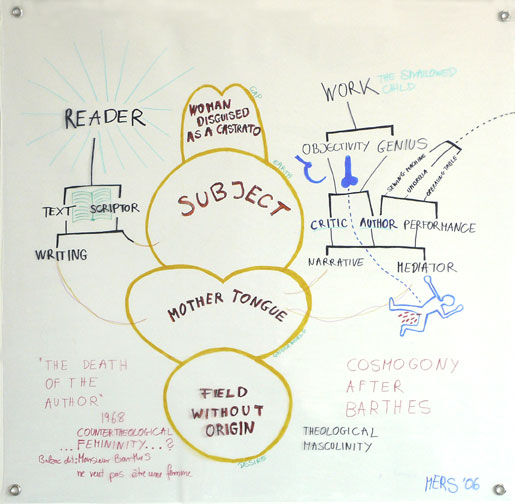 WORK
THE SWALLOWED
CHILD
GAP
WOMAN
DISGUISED
AS A CASTRATO
READER
OBJECTIVITY GENIUS
EARTH
SEWING-MACHINE
UMBRELLA
OPERATING TABLE
SUBJECT
TEXT SCRIPTOR
CRITIC AUTHOR PERFORMANCE
WRITING
NARRATIVE MEDIATOR
MOTHER TONGUE
"THE DEATH
OF THE
AUTHOR"
1968
COUNTERTHEOLOGICAL
...FEMININITY...?
Balzac dit: Monsieur Barthes
ne veut pas être une femme
FIELD
WITHOUT
ORIGIN
COSMOGONY
AFTER
BARTHES
THEOLOGICAL
MASCULINITY
MERS '06